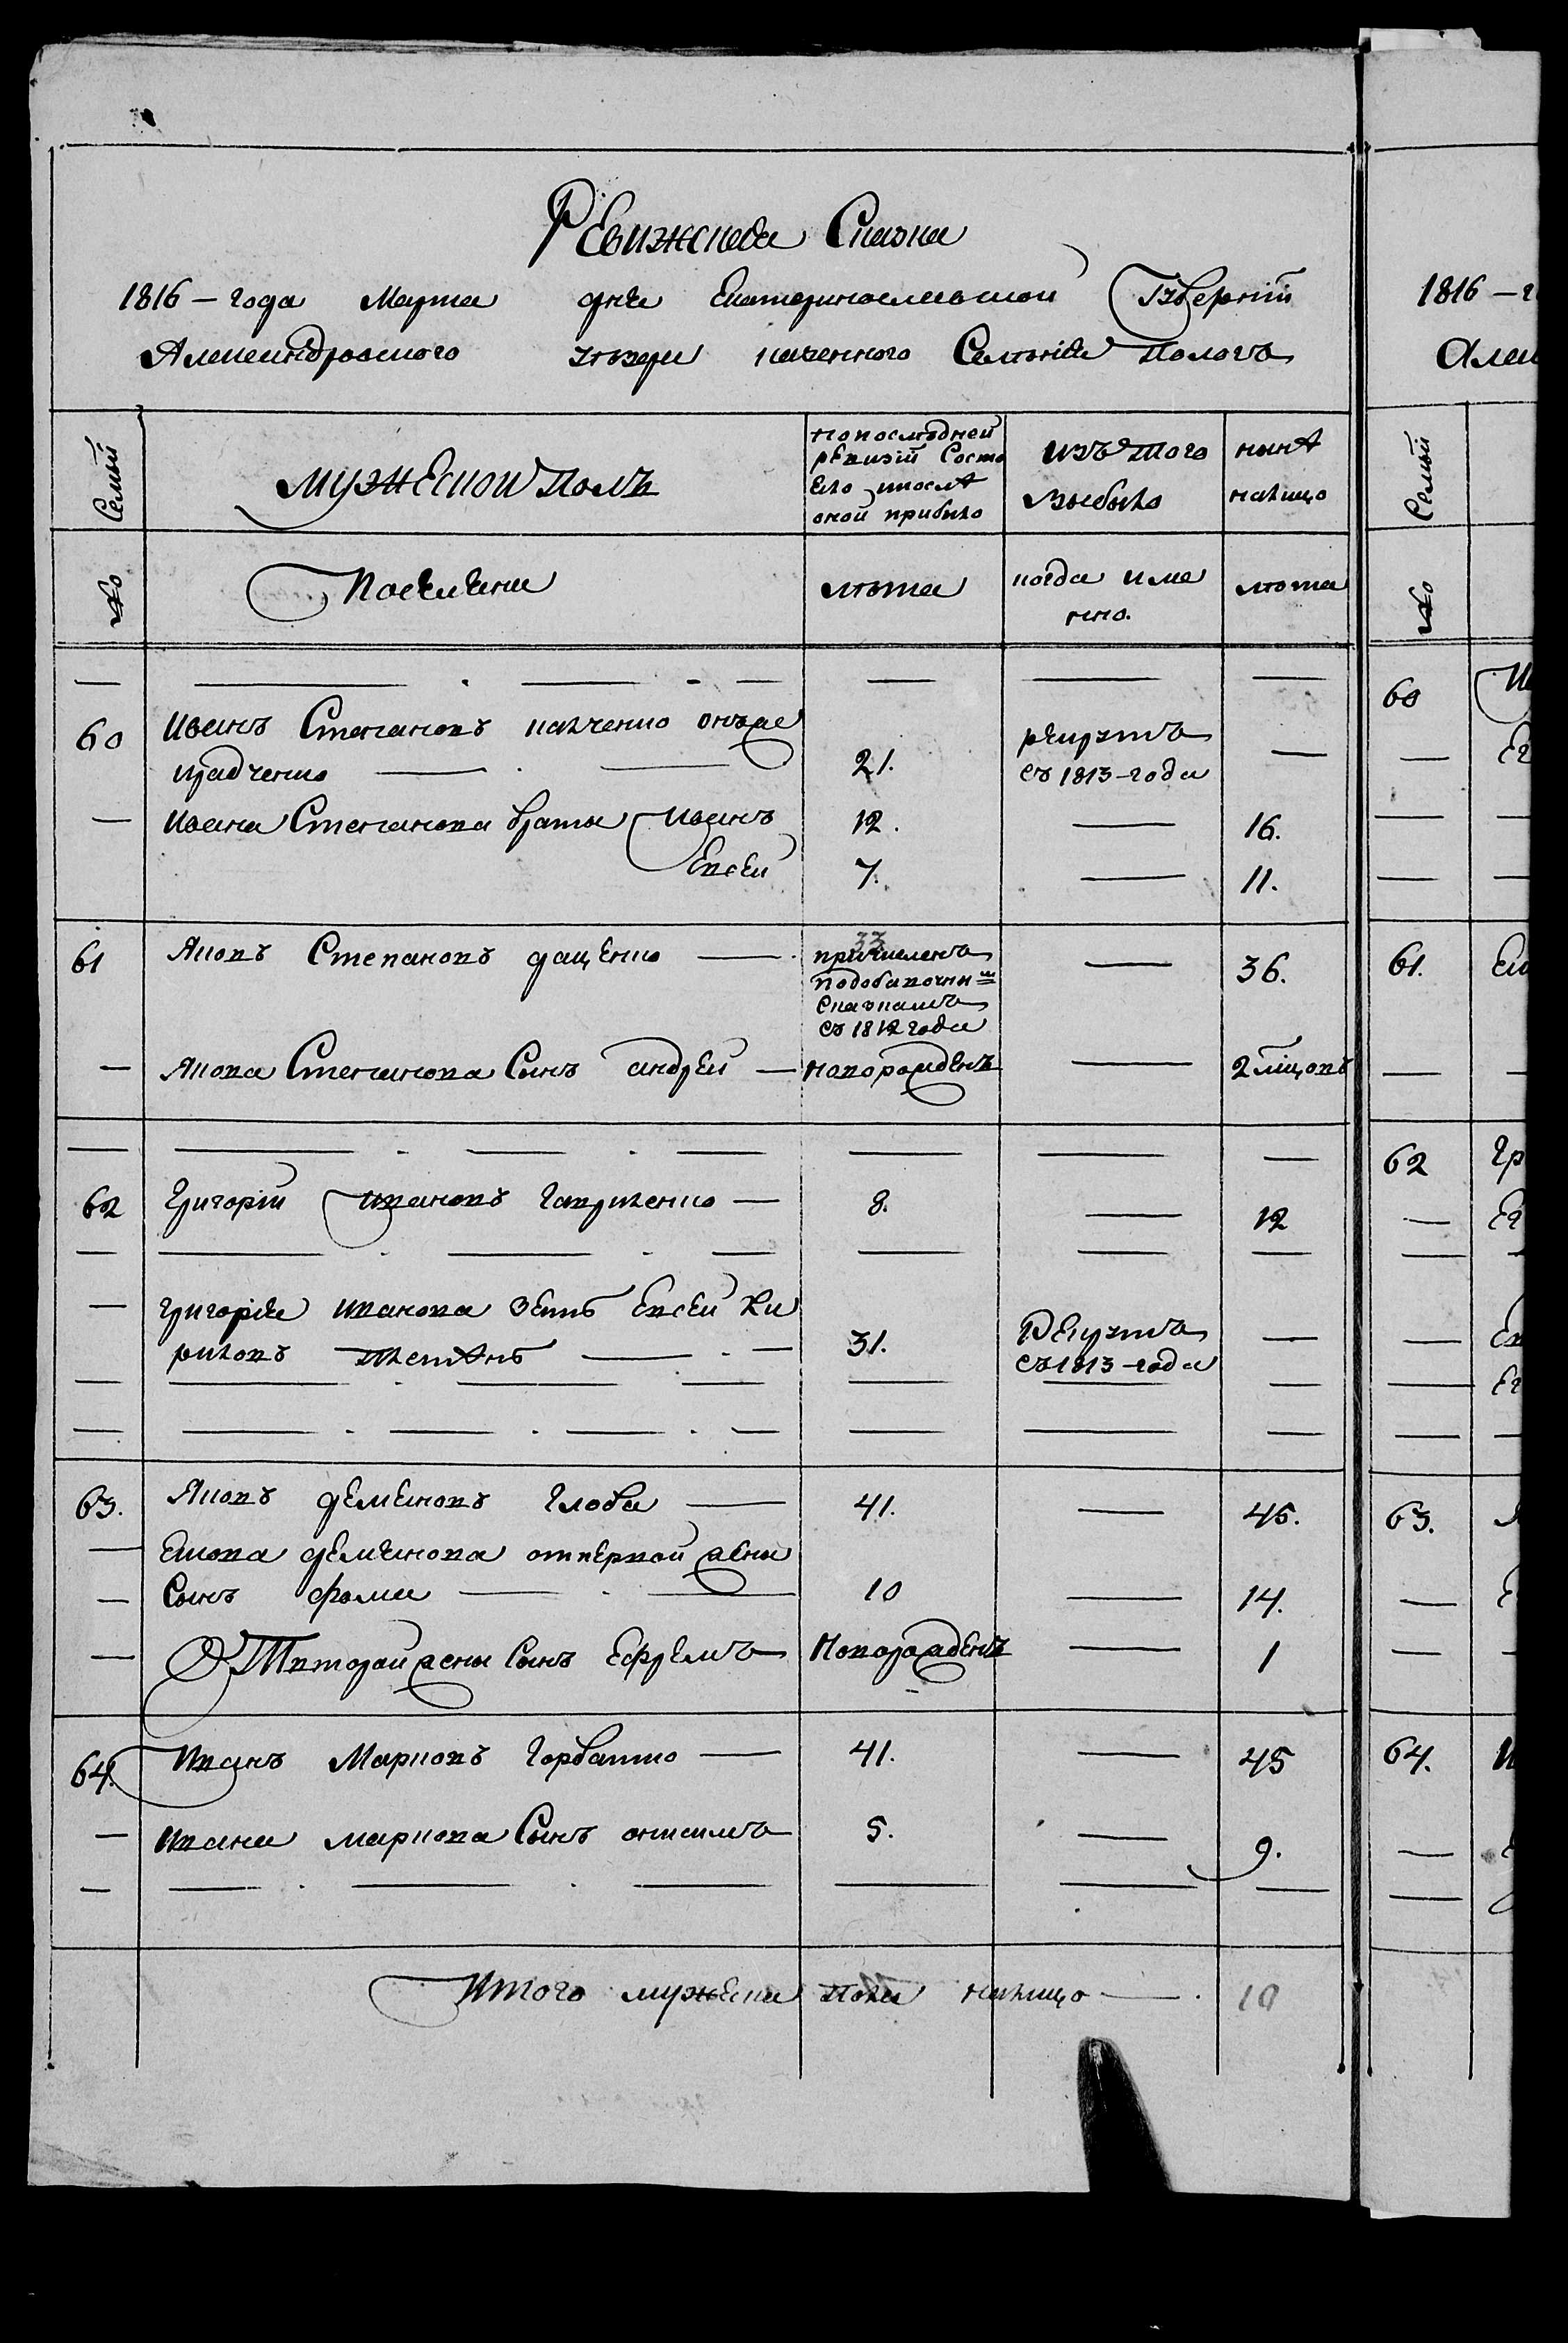 Ревижская Сказка
1816 – года Марта дня Екатеринославской Губерніи
Александровского уезда казенного Селенія Пологъ
Семьи
Мужеской полъ
по последней ревизіи Состо
яло и после
оной прибыло
изъ того
выбыло
ныне
налицо
№
Поселяни
лета
когда име
нно.
лета
60 Иванъ Степановъ
кравченко 21. рекрутъ съ 1813 – года —
— Ивана Степанова браты Иванъ 12. — 16.
Евсей 7. — 11.
61 Яковъ Степановъ дащенко — 33 причисленъ
по добавочнымъ
Сказкамъ
съ 1812 года — 36.
— Якова Степанова Сынъ андрей — новорожденъ — 2 месяцовъ
62 Григорій Ивановъ гавриленко — 8. — 12
— Григорія иванова зять Евсей Ки
риловъ 31. Рекрутъ съ 1813 – года —
63. Яковъ деменовъ глоба — 41. — 45.
— Якова деменова отпервой жены
— Сынъ фома — 10 — 14.
— Отвторой жены Сынъ Ефремъ новорожденъ — 1
64. Иванъ Марковъ горбатко — 41. — 45
— Ивана маркова Сынъ онисимъ 5. — 9.
Итого мужеска пола налицо — 10
1816 – г
Алек
Семьи
№
60
61.
62 Гр
63.
64.